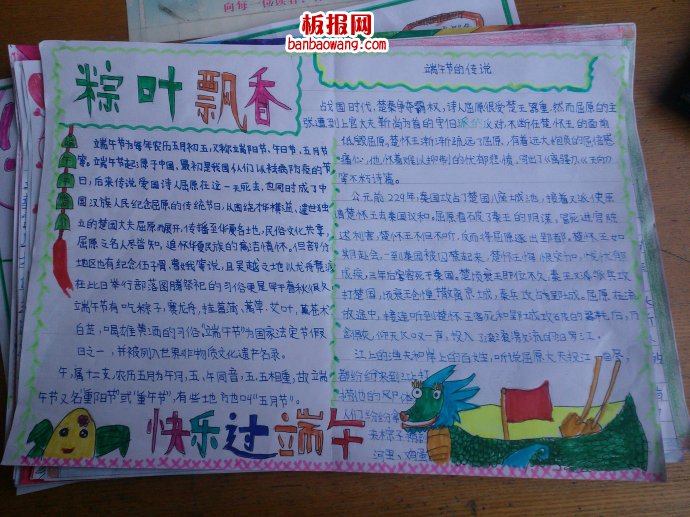 向每一位读者
板报网
banbaowang.com
粽叶飘香
端午节为每年农历五月初五,又称端阳节、午日节、五月节
等。端午节起源于中国,最初是我国人们以祛病防疫的节
日,后来传说爱国诗人屈原在这一天死去,也同时成了中
国汉族人民纪念屈原的传统节日,以围绕才华横溢、遗世独
立的楚国大夫屈原而展开,传播至华夏各地,民俗文化共享,
屈原之名人尽皆知,追怀华夏民族的高洁情怀。但部分
地区也有纪念伍子胥、曹娥等说,且吴越之地以龙舟竞渡
在此日举行部落图腾祭祀的习俗更是早于春秋很久
端午节有吃粽子,赛龙舟,挂菖蒲、蒿草、艾叶,薰苍术
白芷,喝雄黄酒的习俗。"端午节"为国家法定节假
日之一,并被列入世界非物质文化遗产名录。
午,属十二支,农历五月为午月,五、午同音,五、五相重,故端
午节又名"重阳节"或"重午节",有些地方也叫"五月节"。
快乐过端午
端午节的传说
战国时代,楚秦争夺霸权,诗人屈原很受楚王器重,然而屈原的主
张遭到上官大夫靳尚为首的守旧派的反对,不断在楚怀王的面前
低毁屈原,楚怀王渐渐疏远了屈原,有着远大抱负的屈原倍感
痛心,他怀着难以抑制的忧郁悲愤,写出了《离骚》《天向》
等不朽诗篇。
公元前229年,秦国攻占了楚国八座城池,接着又派使臣
请楚怀王去秦国议和。屈原看破了秦王的阴谋,冒死进宫陈
述利害,楚怀王不但不听,反而将屈原逐出郢都。楚怀王如
期赴会,一到秦国就被囚禁起来,楚怀王悔恨交加,忧郁
成疾,三年后客死于秦国。楚顷衰王即位不久,秦王又派兵攻
打楚国,顷衰王仓惶撤离京城,秦兵攻占郢城。屈原在流
放途中,接连听到楚怀王客死和郢城攻破的噩耗后,万
念俱灰,仰天长叹一声,投入了滚滚激流的汩罗江。
江上的渔夫和岸上的百姓,听说屈原大夫投江自尽,
都纷纷来到江上打
捞他的尸体
人们纷纷拿
来粽子、鸡蛋
河里,鸡蛋